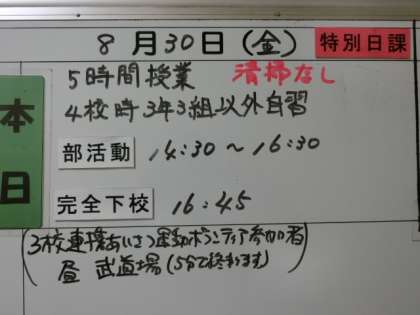 8月30日(金) 特別日課
本日
5時間授業 清掃なし
4校時3年3組以外自習
部活動 14:30～16:30
完全下校 16:45
(3校連携あいさつ運動ボランティア参加者
昼 武道場(5分で終わります))